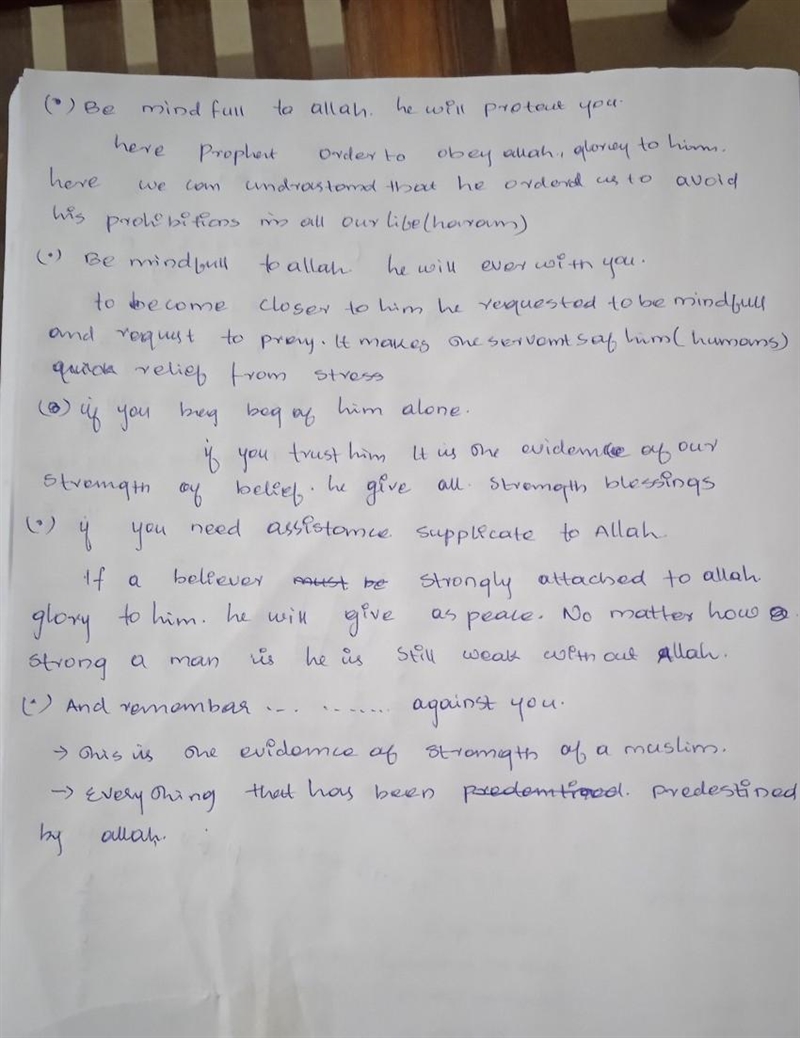 (•) Be mindfull to allah. he will protect you.
here Prophet order to obey allah, gloriey to him.
here we can undrastand that he orderd us to avoid
his prohibitions in all our life (haram)
(•) Be mindfull to allah he will ever with you.
to become closer to him he requested to be mindfull
and requst to prey. It makes the servants of him (humans)
quick relief from stress
(•) if you beg beg of him alone.
if you trust him It is the evidence of our
strength of belief. he give all strength blessings
(•) if you need assistance supplicate to Allah.
If a believer must be strongly attached to allah
glory to him. he will give as peace. No matter how
strong a man is he is still weak without Allah.
(•) And remembar ... ....... against you.
→ this is the evidence of strength of a muslim.
→ Every thing that has been predentined. predestined
by allah.